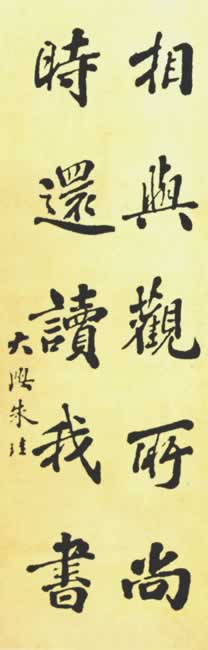 相與觀所尚
時還讀我書
大興朱珪